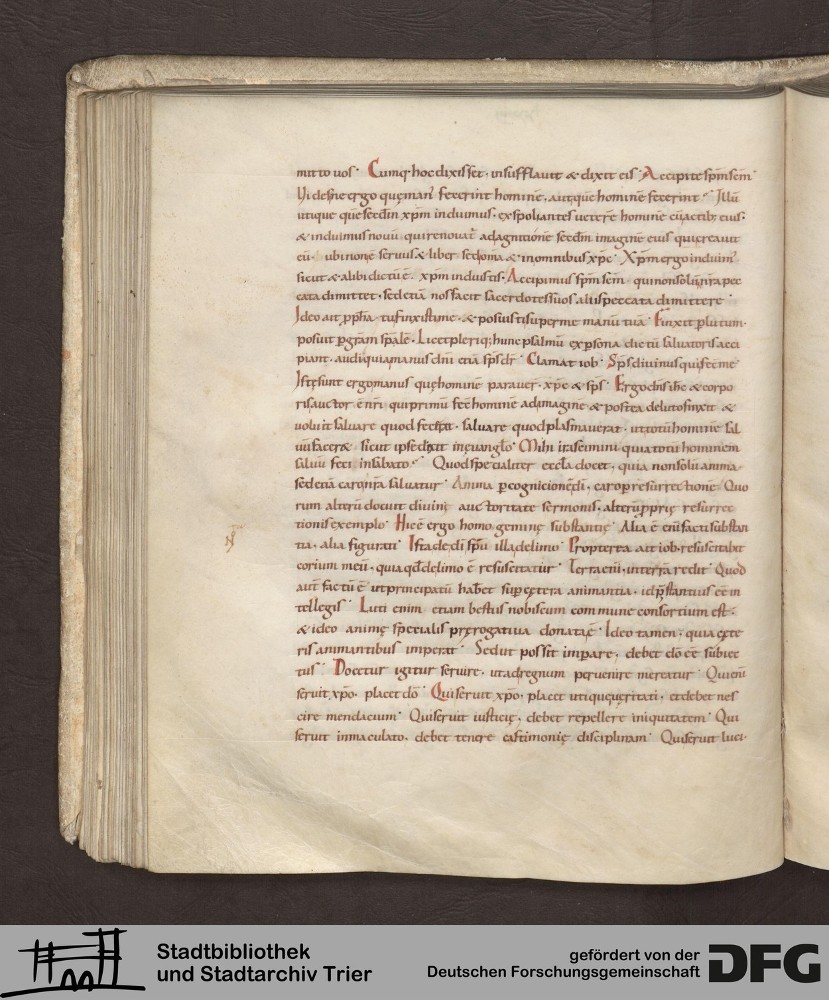 mitto uos· Cumq· hoc dixisset· insufflauit & dixit eis· Accipite spm scm
Vides ne ergo quę man' fecerint hominē· aut quę hominē fecerint· Illū
utique que scdm xpm induimus· exspoliantes ueterē hominē cū actib; eius·
& induimus nouū qui renouat' ad agnitionē scdm imaginē eius qui creauit
eū· ubi non ē seruus & liber sed omia & in omnibus xpc· Xpm ergo induim'
sicut & alibi dictū ē· xpm induistis· Accipimus spm scm qui non solū nra pec
cata dimittet· sed etiā nos facit sacerdotes suos aliis peccata dimittere·
Ideo ait ppha· tu finxisti me· & posuisti super me manū tuā· Finxit p lutum·
posuit p gram spale· Licet pleriq; hunc psalmū ex psona dictū saluatoris acci
piant· audi quia manus dni etiā sps dr· Clamat iob· Sps diuinus qui fec me
Istę sunt ergo manus quę hominē parauer· xpc & sps· Ergo dns ihc & corpo
ris auctor ē nri qui primū fec hominē ad imaginē & postea de luto finxit &
uoluit saluare quod fecerat· saluare quod plasmauerat· ut totū hominē sal
uū facer& sicut ipse dixit in euanglo· Mihi irascimini quia totū hominem
saluū feci in sabato· Quod specialiter eccla docet· quia non solū anima
sed etiā caro nra saluatur· Anima p cognicionē di· caro p resurrectionē· Quo
rum alterū docuit diuinę auctoritate sermonis· alterū pprię resurrec
tionis exemplo· Hic ē ergo homo geminę substantię· Alia ē eni facti substan
tia· alia figurati· Ista de di spu illa de limo· Propterea ait iob· resuscitabit
corium meū· quia qd de limo ē resuscitatur· Terra eni· in terrā redit· Quod
aut factū ē ut principatū habet sup cętera animantia· id pstantius eē in
tellegis· Luti enim etiam bestiis nobiscum commune consortium est·
& ideo animę specialis prerogatiua donata ē· Ideo tamen· quia cęte
ris animantibus imperat· Sed ut possit impare· debet dō eē subiec
tus· Docetur igitur seruire· ut ad regnum peruenire mereatur· Qui eni
seruit xpo· placet dō· Qui seruit xpo· placet utique ueritati· et debet nes
cire mendacium· Qui seruit iusticię· debet repellere iniquitatem· Qui
seruit inmaculato· debet tenere castimonię disciplinam· Qui seruit luci·
Stadtbibliothek
und Stadtarchiv Trier
gefördert von der
Deutschen Forschungsgemeinschaft
DFG